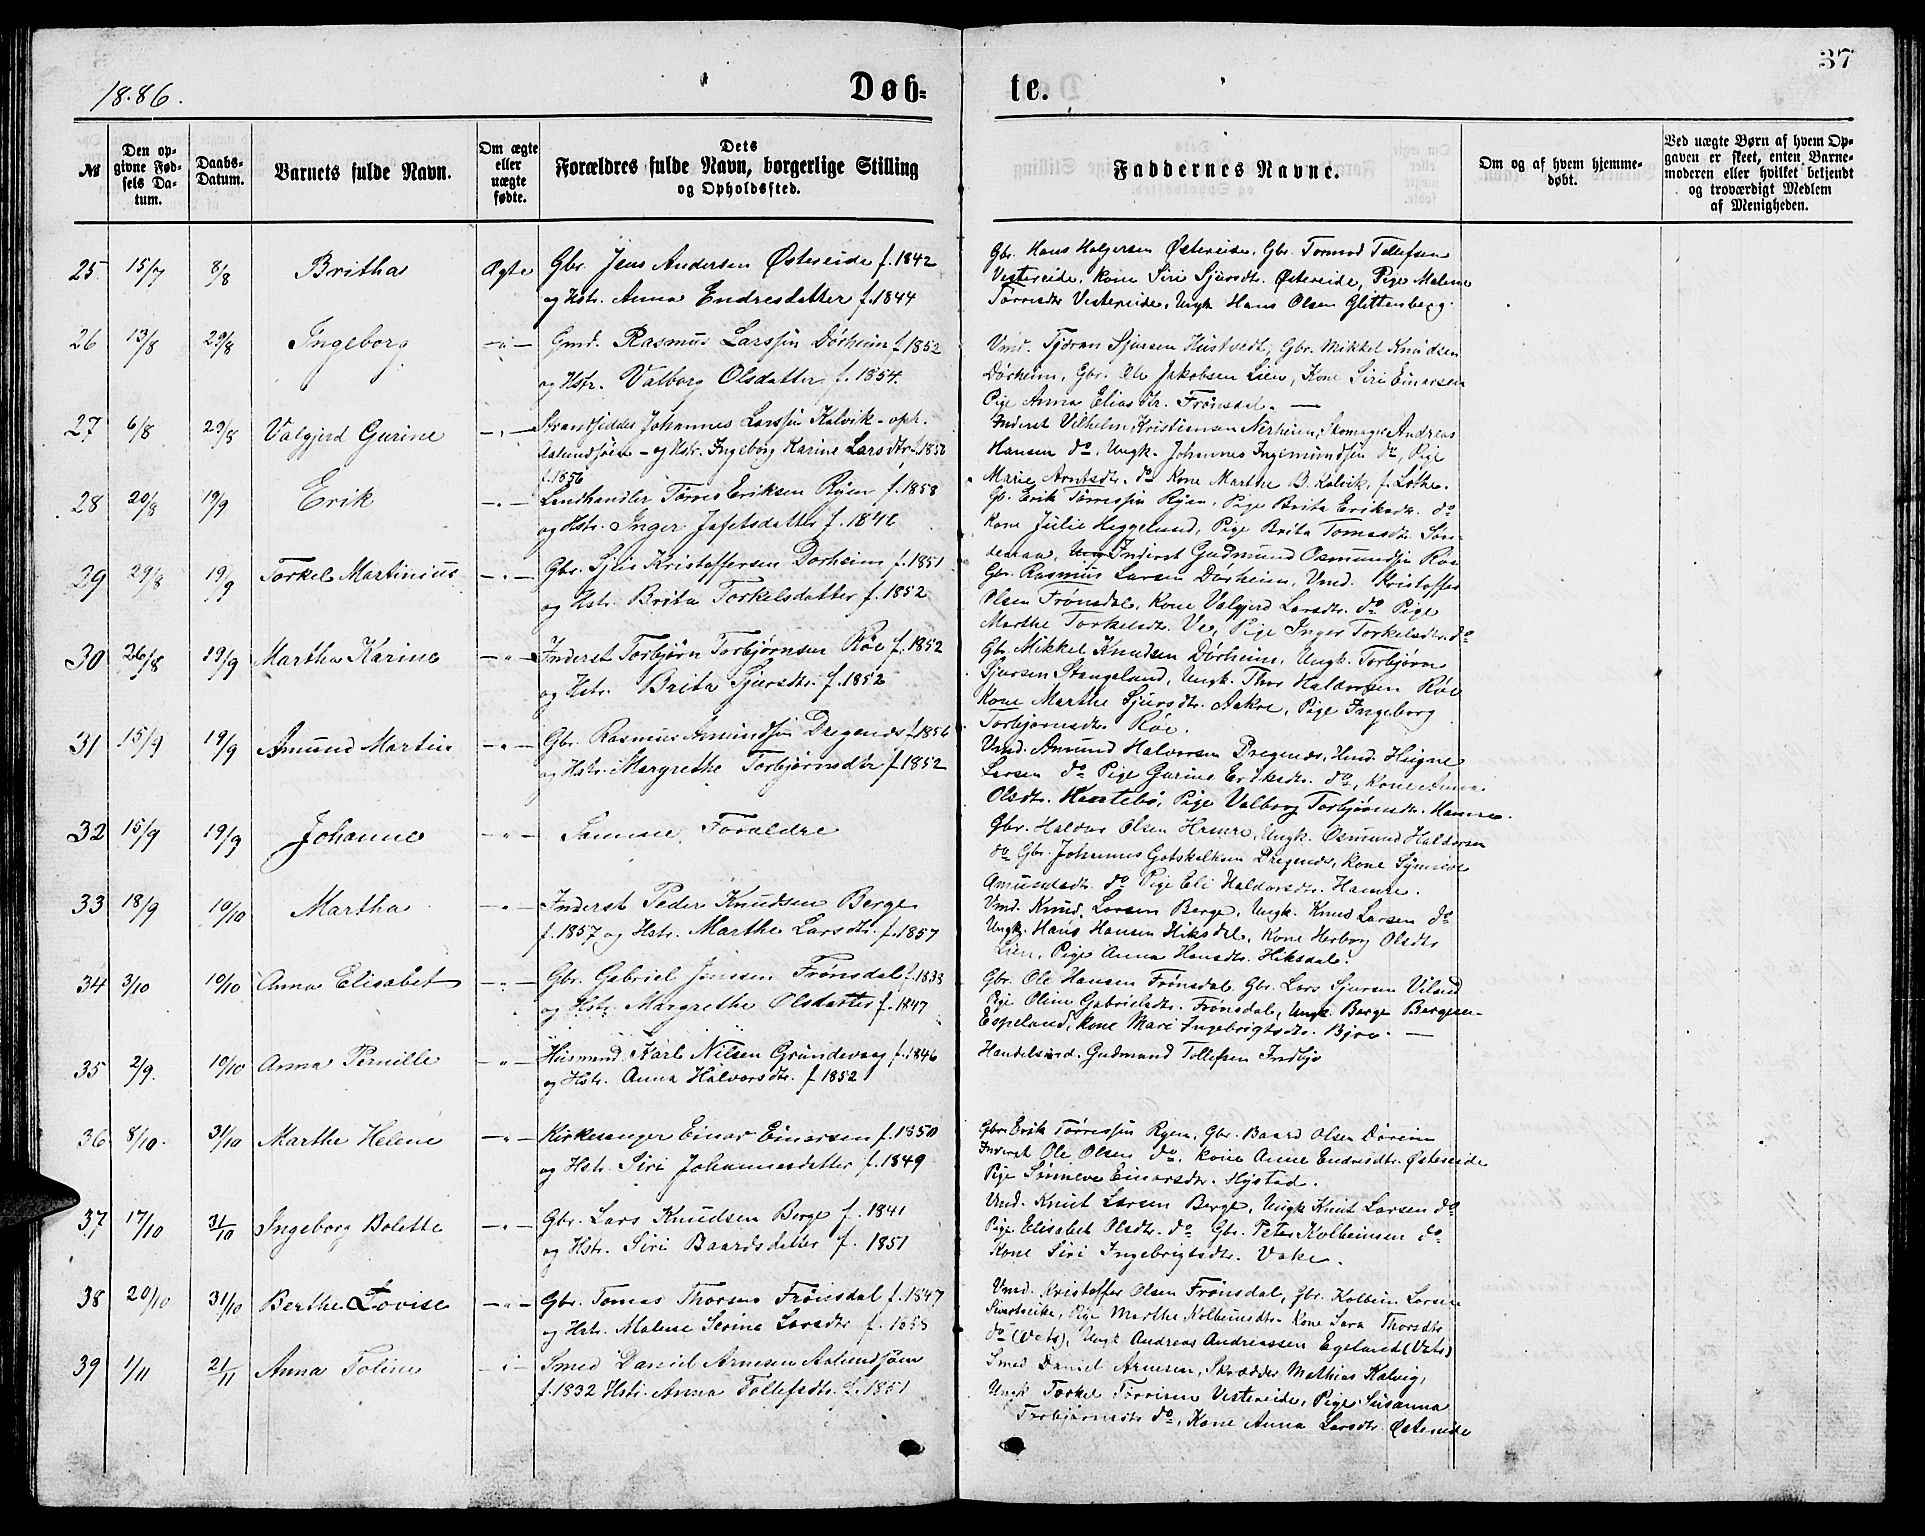 37
1886.
Døb-
te.
№
Den op-
givne Fød-
sels Da-
tum.
Daabs-
Datum.
Barnets fulde Navn.
Om ægte
eller
uægte
fødte.
Dets
Forældres fulde Navn, borgerlige Stilling
og Opholdssted.
Faddernes Navne.
Om og af hvem hjemme-
døbt.
Ved uægte Børn af hvem Op-
gaven er skeet, enten Barne-
moderen eller hvilket bekjendt
og troværdigt Medlem
af Menigheden.
25 15/7 8/8 Britha Ægte Gbr. Jens Andersen Østereide f. 1842
og Hstr. Anna Endresdatter f. 1844
Gbr. Hans Holgersen Østereide, Gbr. Tormod Tollefsen
Vestereide, Kone Siri Sjursdt. Østereide, Pige Malene
Tørrisdtr Vestereide, Ungk Hans Olsen Glittenberg.
26 13/8 29/8 Ingeborg -"- Gmd. Rasmus Larssøn Dørheim f. 1852
og Hstr. Valborg Olsdatter f. 1854.
Vmd. Tjøran Sjursen Hustvedt, Gbr. Mikkel Knudsen
Dørheim, Gbr. Ole Jakobsen Lien, Kone Siri Einarsen
Pige Anna Eliasdtr. Frønsdal. —
27 6/8 29/8 Valgjerd Gurine -"- Strandsidder Johannes Larssøn Kalvik - oph.
Aalundsøen - og Hstr. Ingeborg Karine Larsdtr f. 1856
f. 1856
Inderst Vilhelm Kristiansen Nerheim, Skomager Andreas
Hansen do, Ungk. Johannes Ingemundsøn do, Pige
Marie Arntsdtr. do Kone Marthe B. Kalvik, f. Lothe.
28 20/8 19/9 Erik -"- Landhandler Tørres Eriksen Ryen f. 1858
og Hstr. Inger Jafetsdatter f. 1846
Gb. Erik Tørressøn Ryen, Pige Brita Eriksdt. do
Kone Julie Heggelund, Pige Brita Tomasdtr. Søn-
denaa, Inderst Gudmund Osmundsøn Røe
29 29/8 19/9 Torkel Martinius -"- Gbr. Kristoffersen Dørheim f. 1851
og Hstr. Brita Torkelsdatter f. 1852
Gbr. Rasmus Larsen Dørheim, Vmd. Kristoffer
Olsen Frønsdal, Kone Valgjerd Larsdtr. do Pige
Marthe Torkelsdtr. Ve, Pige Inger Torkelsdtr. do
30 26/8 19/9 Martha Karine -"- Inderst Torbjørn Torbjørnsen Røe f. 1852
og Hstr. Brita Sjursdtr. f. 1852
Gbr Mikkel Knudsen Dørheim, Ungk. Torbjørn
Sjursen Stangeland, Ungk. Thor Haldorsen Røe
Kone Marthe Sjursdtr. Aakre, Pige Ingeborg
Torbjørnsdtr. Røe.
31 15/9 19/9 Amund Martin -"- Gbr. Rasmus Amundsøn Dregenes f. 1856
og Hstr. Margrethe Torbjørnsdtr f. 1852
Vmd. Amund Halvorsen Dregenes, Vmd. Høgne
Larsen do Pige Gurine Eriksdtr. do, Kone Anna
Olsdtr. Haatebø, Pige Valborg Torbjørnsdtr. Hamre.
32 15/9 19/9 Johanne -"- Samme Forældre
Gbr. Haldor Olsen Hamre, Ungk. Osmund Haldorsen
do Gbr. Johannes Gotskalksen Dregenes, Kone Synneve
Amundsdtr. do Pige Eli Haldorsdtr. Hamre.
33 18/9 10/10 Martha -"- Inderst Peder Knudsen Berge
f. 1857 og Hstr. Marthe Larsdtr. f. 1857
Vmd. Knud Larsen Berge, Ungk. Knud Larsen do
Ungk. Hans Hansen Hiksdal, Kone Herborg Olsdtr
Lien, Pige Anna Hansdtr. Hiksdal.
34 3/10 10/10 Anna Elisabet -"- Gbr. Gabriel Jensen Frønsdal f. 1838
og Hstr. Margrethe Olsdatter f. 1847
Gbr. Ole Hansen Frønsdal, Gbr. Lars Sjursen Viland
Pige Oline Gabrielsdtr. Frønsdal, Ungk. Berge Bergesen
Espeland, Kone Mari Ingebrigtsdtr. Bjoe. —
35 2/9. 10/10 Anna Pernille -"- Husmnd. Karl Nilsen Grundevaag f. 1846
og Hstr. Anna Halvorsdtr. f 1852
Handelsmd. Gudmund Tollefsen Indbjo
36 8/10. 31/10 Marthe Helene -"- Kirkesanger Einar Einarsen f. 1850
og Hstr. Siri Johannesdatter f. 1849
Gbr. Erik Tørressøn Ryen, Gbr. Baard Olsen Døreim
Inderst Ole Olsen do, Kone Anne Endresdtr. Østereide
Pige Sønneve Einarsdtr. Hystad.
37 17/10 31/10 Ingeborg Bolette -"- Gbr. Lars Knudsen Berge f. 1841
og Hstr. Siri Baardsdatter f. 1851
Vmd. Knut Larsen Berge, Ungk Knut Larsen do
Pige Elisabet Olsdtr. do Gbr. Peter Kolbeinsen do
Kone Siri Ingebrigtsdtr. Vake.
38 20/10 31/10 Berthe Lovise -"- Gbr. Tomas Thorsen Frønsdal f. 1847
og Hstr. Malene Serine Larsdtr f. 1858
Vmd. Kristoffer Olsen Frønsdal, Gbr. Kolbein Larsen
Svartveite, Pige Marthe Kolbeinsdtr. Kone Sara Thorsdtr
do (Vats), Ungk Andreas Andreassen Egeland (Vats)
39 1/11 21/11 Anna Toline -"- Smed Daniel Arnesen Aalundsøen
f. 1832 Hstr. Anna Tollefsdtr. f. 1851
Smed Daniel Arnesen, Skrædder Mathias Kalvig,
Ungk Torkel Tørrisen Vestereide, Pige Susanna
Torbjørnsdtr do, Kone Anna Larsdtr. Østereide